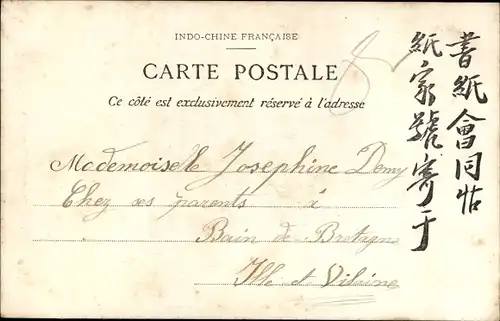 INDO-CHINE FRANÇAISE
CARTE POSTALE
Ce côté est exclusivement réservé à l'adresse
Mademoiselle Josephine Demy
Chez ses parents à
Bain de Bretagne
Ille et Vilaine
書紙會同帖
紙家號寄于